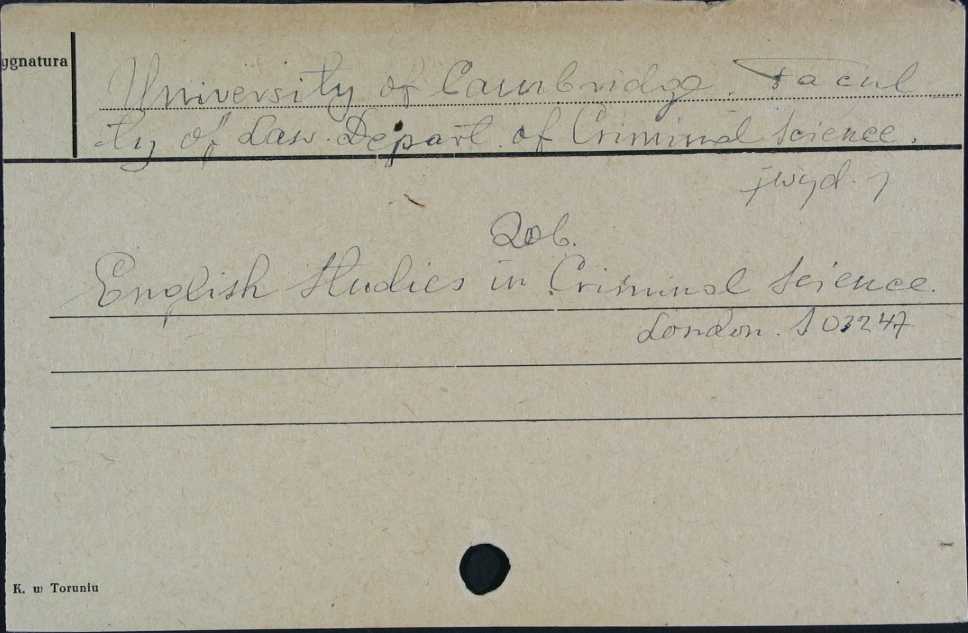 ygnatura
University of Cambridge. Facul
ty of Law. Depart. of Criminal Science.
jwyd. j
Zob.
English Studies in Criminal Science.
London. S 03247
K. w Toruniu